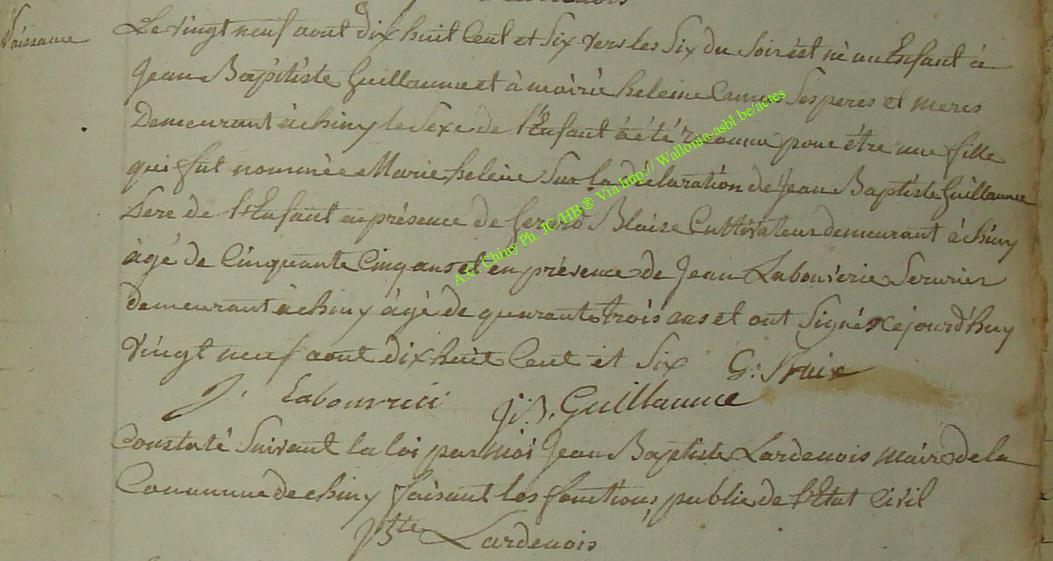 Naissance
Le vingt neuf aout dix huit Cent et Six vers les Six du Soir est né un Enfant à
Jean Baptiste Guillaume et à mairie heleine Camus Ses peres et meres
Demeurant à chiny le Sexe de l'Enfant à été reconnu pour être une fille
qui fut nommée Marie heleine Sur la déclaration de Jean Baptiste Guillaume
Pere de l'Enfant en présence de Blaise Cultivateur demeurant à chiny
âgé de Cinquante Cinq ans et en présence de Jean Labouverie Serurier
demeurant à chiny âgé de quarante trois ans et ont Signés Cejourd'huy
vingt neuf aout dix huit Cent et Six G:
J. Labouvrie J:B. Guillaume
Constaté Suivant la loi par moi Jean Baptiste Lardenois maire de la
Commune de chiny faisant les fonctions public de l'Etat Civil
JBtte Lardenois
A.C. Chiny Ph. JC/HB® Via http:// Wallonia-asbl.be/actes